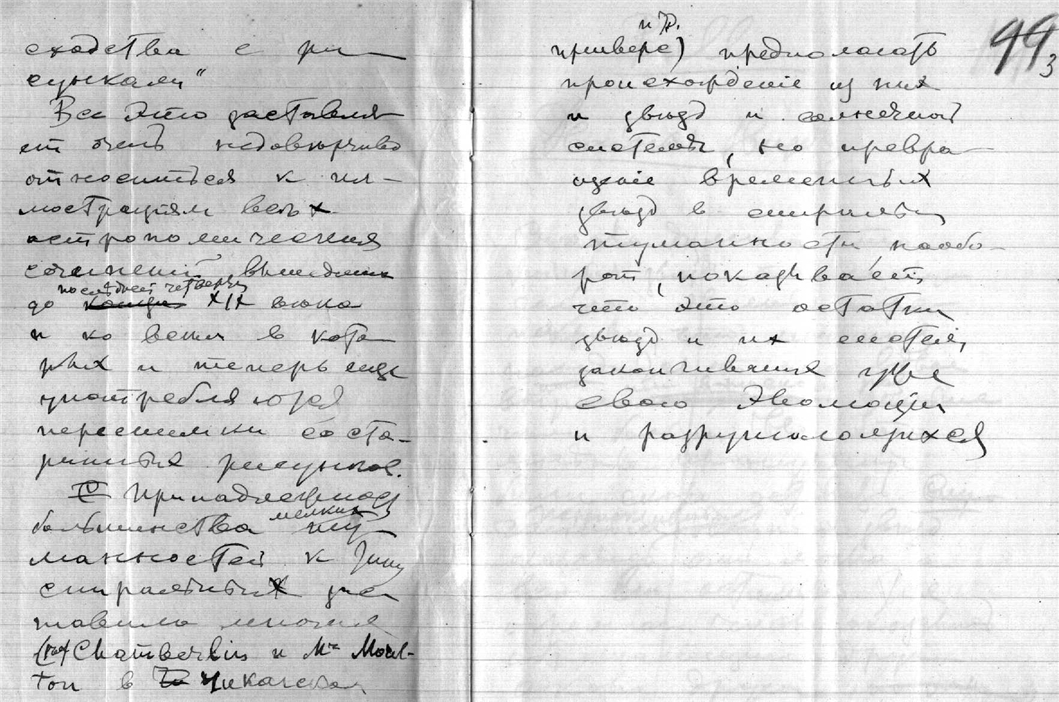 сходства с ри
сунками"
Все это заставля
ет очень недоверчиво
относиться к ил-
люстрациям всех
астрономических
сочинений, вышедших
последней четверти
до конца XIX века
и ко всем в кото
рых и теперь еще
употребляются
пересъемки со ста-
ринных рисунков.
Принадлежность
мелких
большинства ту
манностей к типу
спиральных за
ставила многих
(prof Chamberlin и Mr Moul-
ton в Чикагском
99
3
и др.
универс) предполагать
происхождение из них
и звезд и солнечной
системы, но превра-
щение временных
звезд в спиральн
туманности наобо-
рот, показывает,
что это остатки
звезд и их систем,
закончивших уже
свою эволюцию
и разрушающихся